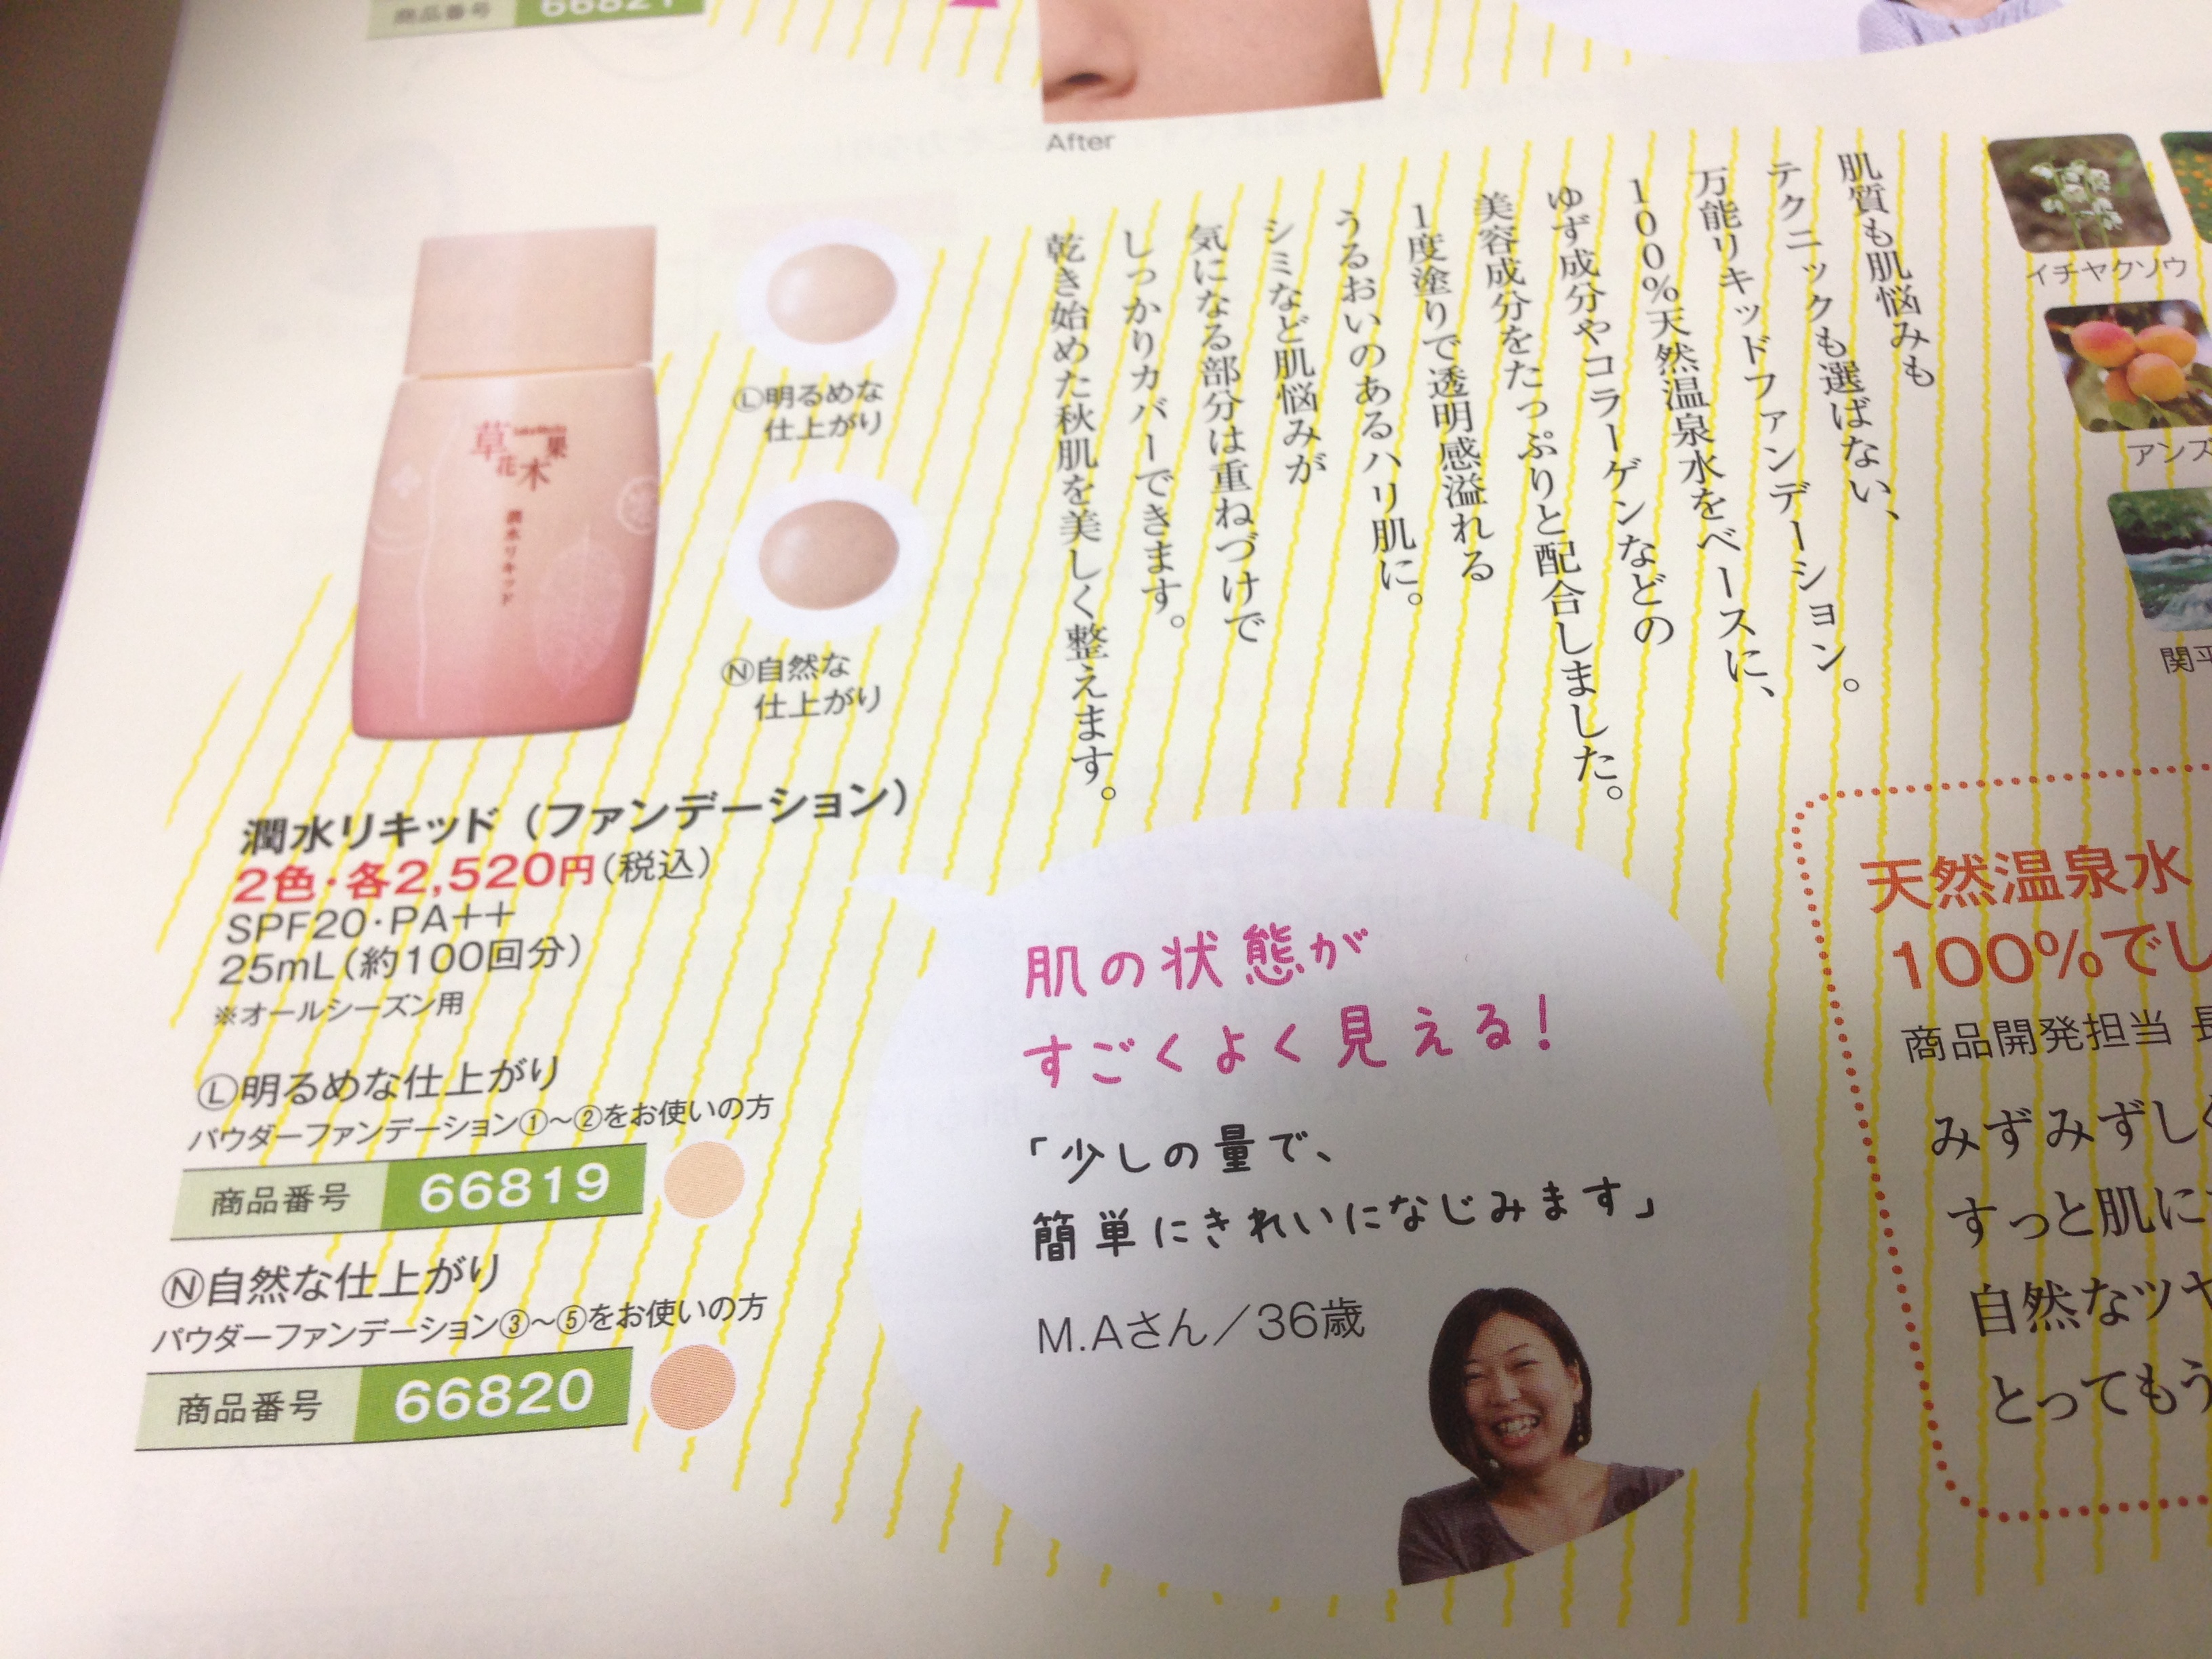 商品番号 66821
After
肌質も肌悩みも
テクニックも選ばない、
万能リキッドファンデーション。
100%天然温泉水をベースに、
ゆず成分やコラーゲンなどの
美容成分をたっぷりと配合しました。
1度塗りで透明感溢れる
うるおいのあるハリ肌に。
シミなど肌悩みが
気になる部分は重ねづけで
しっかりカバーできます。
乾き始めた秋肌を美しく整えます。
イチヤクソウ
アンズ
関平
草花木果
潤水リキッド
Ⓛ明るめな
仕上がり
Ⓝ自然な
仕上がり
潤水リキッド（ファンデーション）
2色・各2,520円(税込)
SPF20・PA++
25mL(約100回分)
※オールシーズン用
Ⓛ明るめな仕上がり
パウダーファンデーション①～②をお使いの方
商品番号 66819
Ⓝ自然な仕上がり
パウダーファンデーション③～⑤をお使いの方
商品番号 66820
肌の状態が
すごくよく見える!
「少しの量で、
簡単にきれいになじみます」
M.Aさん／36歳
天然温泉水
100%でし
商品開発担当 長
みずみずしく
すっと肌に
自然なツヤ
とってもう